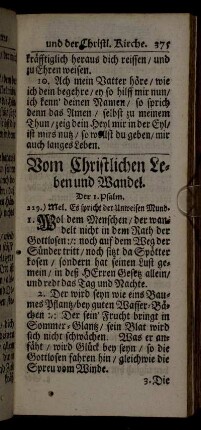 und der Christl. Kirche. 375
kräfftiglich heraus dich reissen/ und
zu Ehren weisen.
10. Ach mein Vatter höre/ wie
ich dein begehre/ eh so hilff mir nun/
ich kenn' deinen Namen/ so sprich
denn das Amen/ selbst zu meinem
Thun/ zeig dein Heyl mir in der Eyl/
ist mirs nutz/ so wollst du geben/ mir
auch langes Leben.
Vom Christlichen Le-
ben und Wandel.
Der 1. Psalm.
229.) Mel. Es spricht der Unweisen Mund.
1. Wol dem Menschen/ der wan-
delt nicht in dem Rath der
Gottlosen/:: noch auf dem Weg der
Sünder tritt/ noch sitzt da Spötter
kosen/ sondern hat seinen Lust ge-
mein/ in deß HErren Gesetz allein/
und redt das Tag und Nachte.
2. Der wird seyn wie eins Bau-
mes Pflantz/bey guten Wasser-Bä-
chen ::: Der sein' Frucht bringt in
Sommer-Glantz/ sein Blat wird
sich nicht schwächen. Was er an-
fäht/ wird Glück bey seyn/ so die
Gottlosen fahren hin/ gleichwie die
Spreu vom Winde.
3. Die